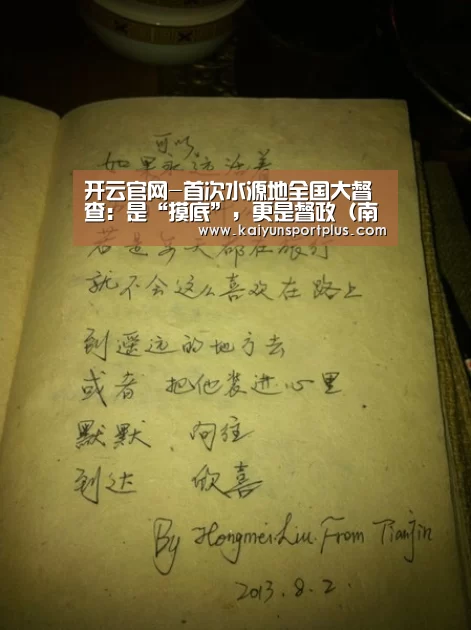 可以
如果永远活着
开云官网-首次水源地全国大督
查：是“摸底”，更是督政（南
www.kaiyunsportplus.com
若是每天都在旅行
就不会这么喜欢在路上
到遥远的地方去
或者 把他装进心里
默默 向往
到达 欣喜
By Hongmei Liu. From Tianjin
2013.8.2.